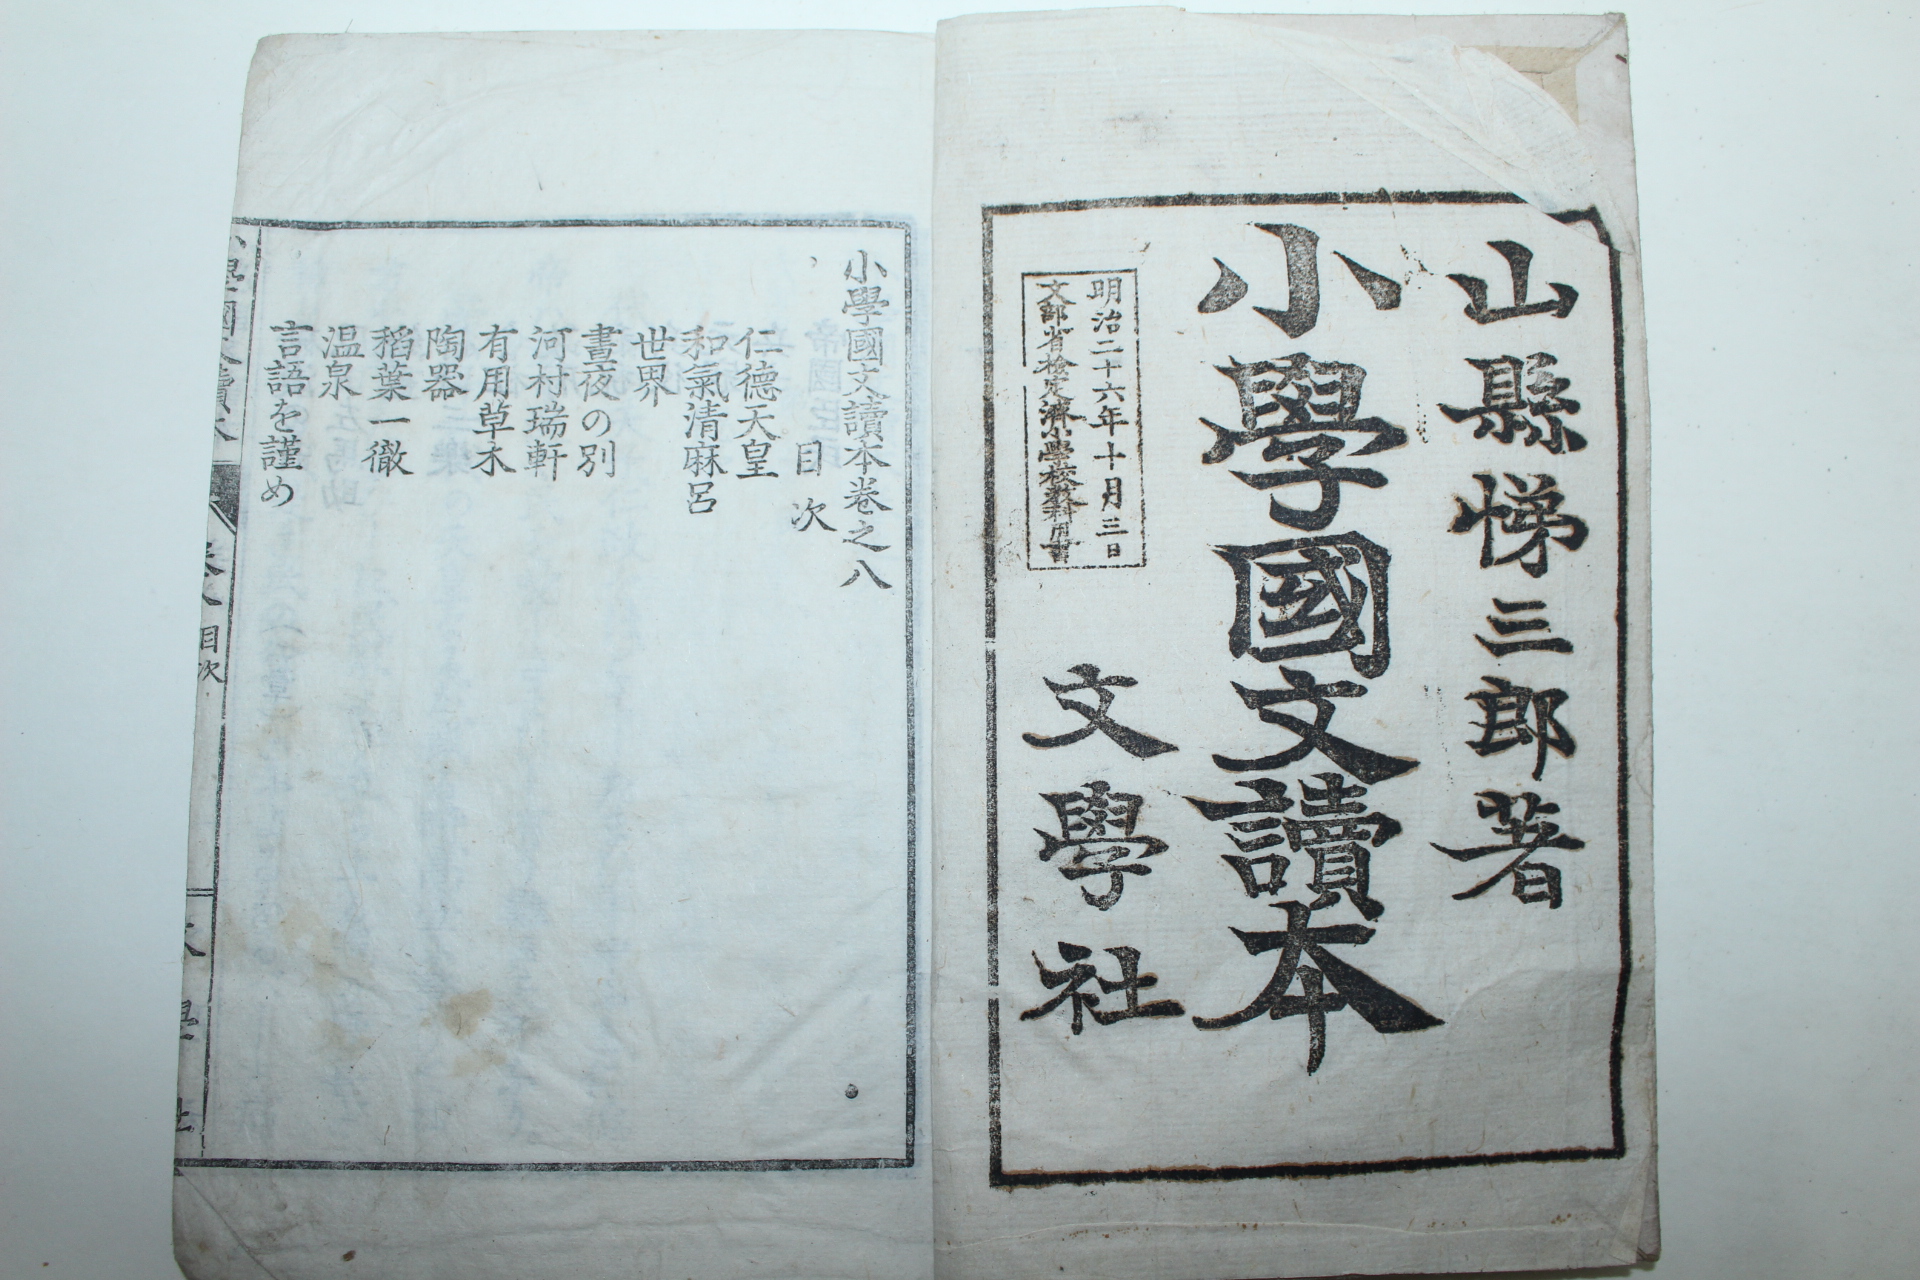 山縣悌三郎著
小學國文讀本
明治二十六年十月三日
文部省檢定濟小學校教科用書
文學社
小學國文讀本卷之八
目次
仁德天皇
和氣淸麻呂
世界
晝夜の別
河村瑞軒
有用草木
陶器
稻葉一徹
温泉
言語を謹め
小學國文讀本
卷八
目次
文學社